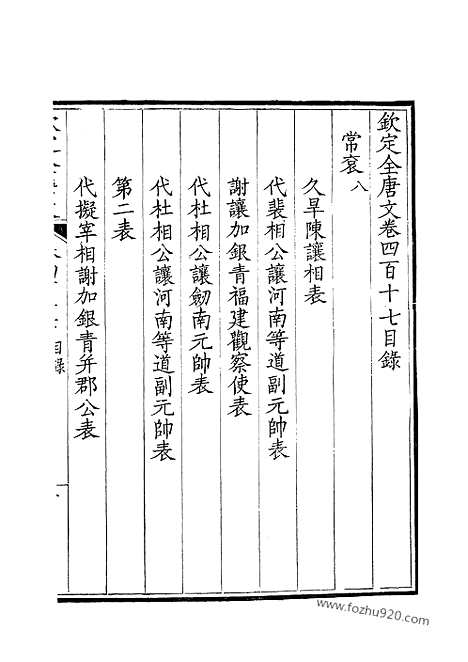 欽定全唐文卷四百十七目錄
常袞八
久旱陳讓相表
代裴相公讓河南等道副元帥表
謝讓加銀青福建觀察使表
代杜相公讓劒南元帥表
代杜相公讓河南等道副元帥表
第二表
代擬宰相謝加銀青并郡公表
目錄
www.fozhu920.com